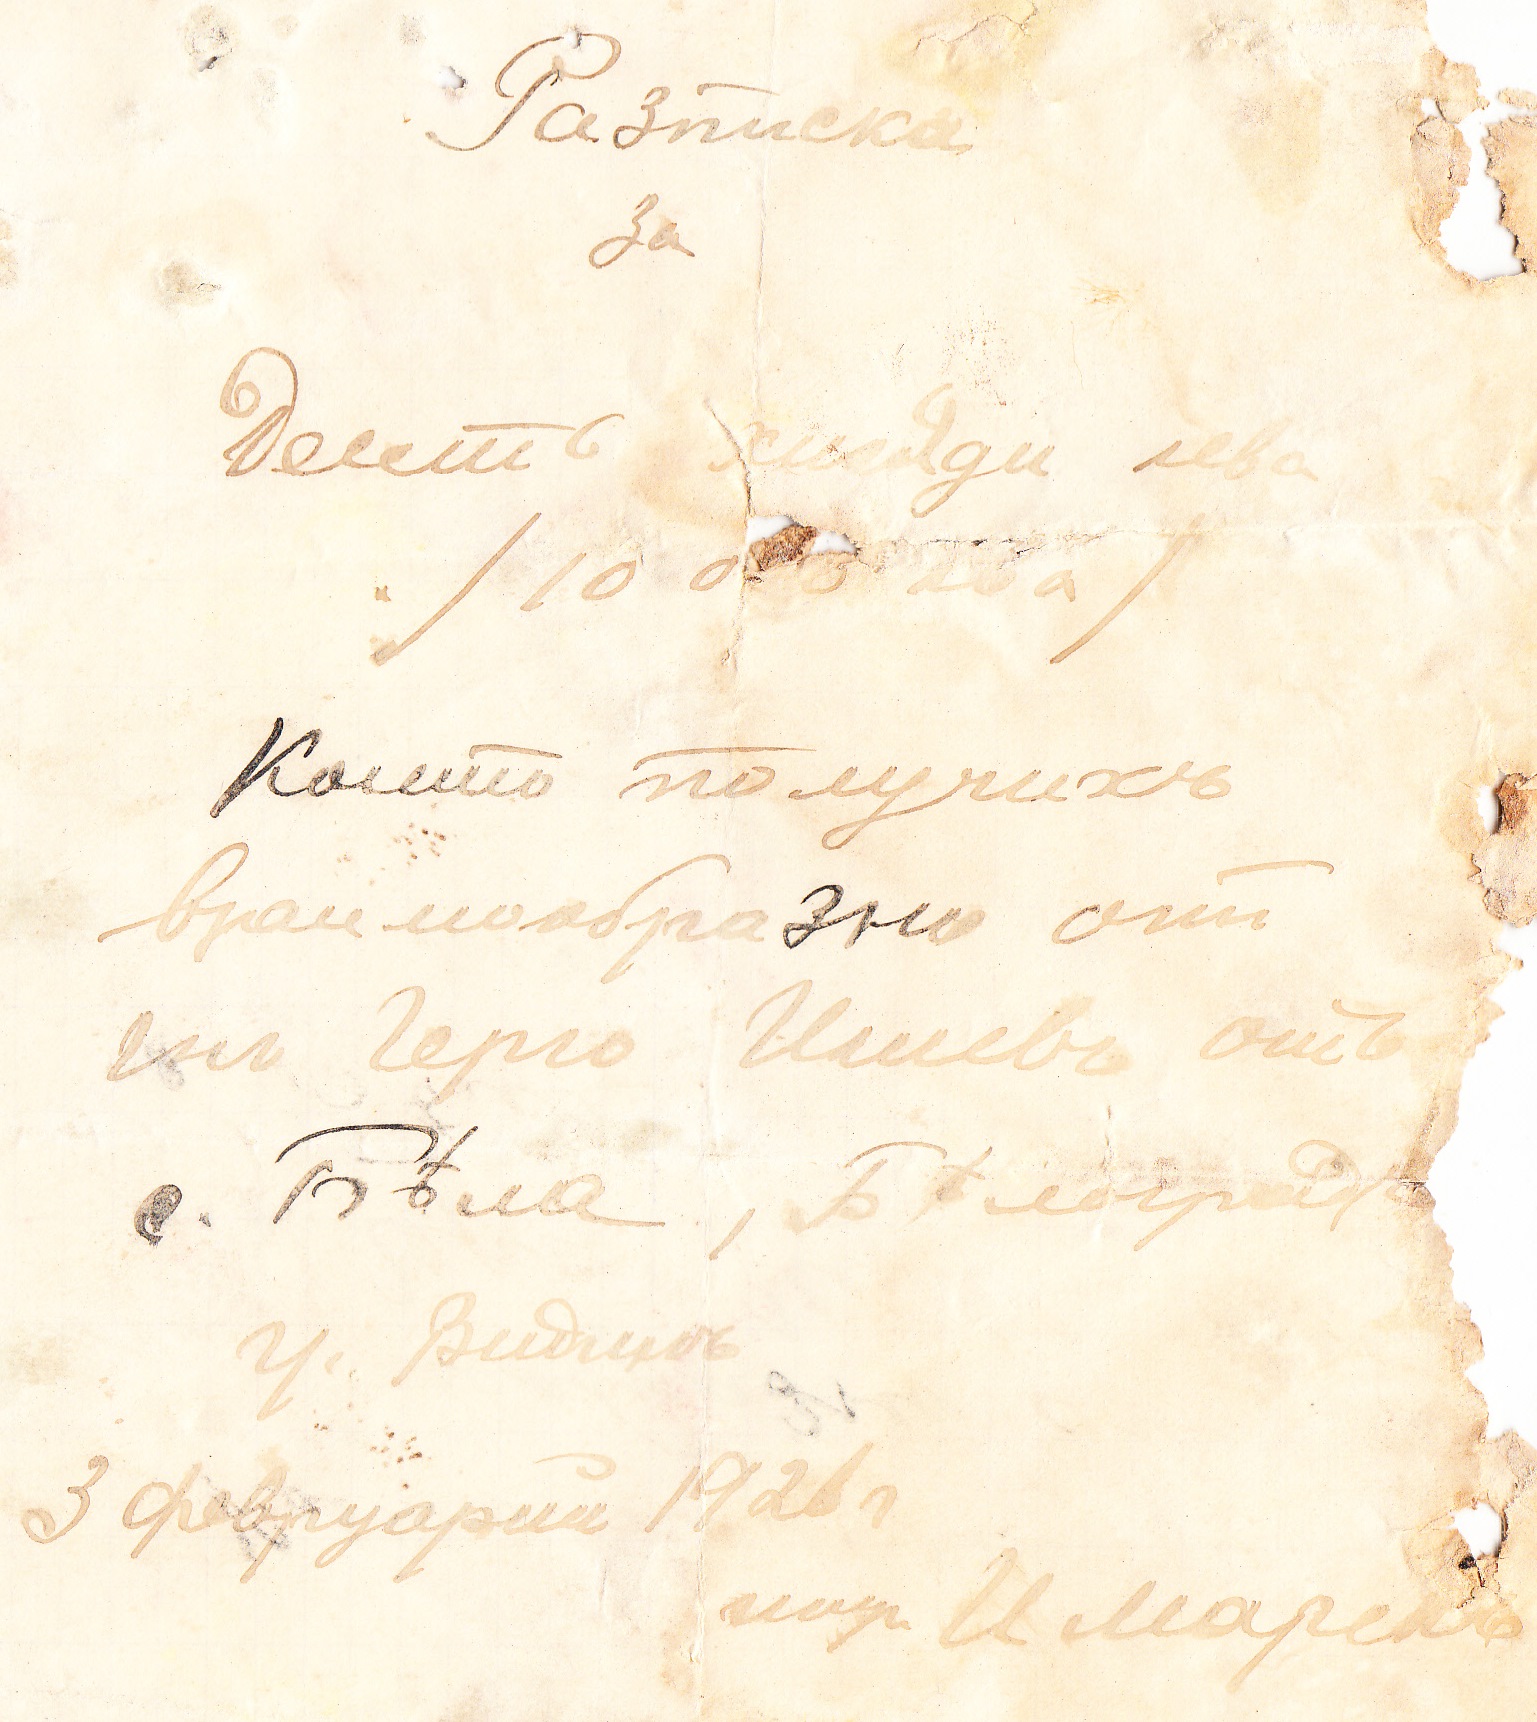 Разписка
за
Десеть хиляди лева
/ 10 000 лева /
Които получихъ
враимообразно от
Герго Илиевъ отъ
с. Бѣла , Бѣлоградч
Видинъ
3 февруарий 1926 г
И Маренъ